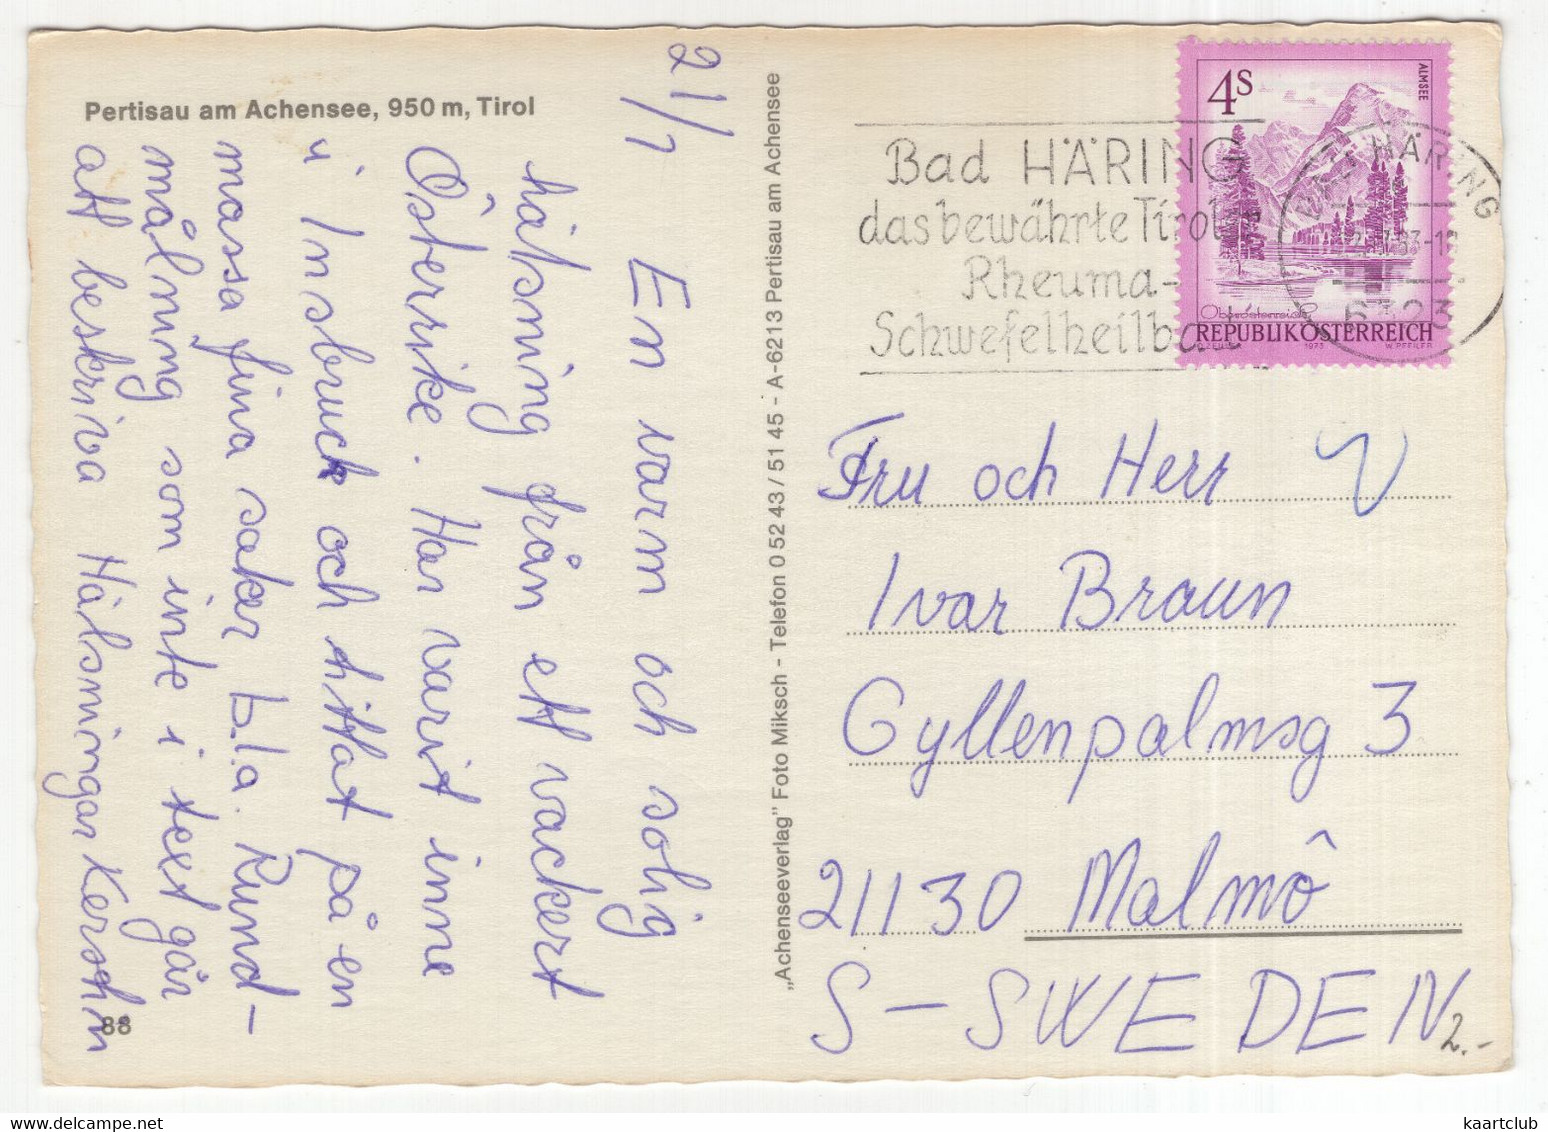 Pertisau am Achensee, 950 m, Tirol
21/7
En varm och solig
hälsning från ett vackert
Österrike. Har varit inne
i Insbruck och hittat på en
massa fina saker bl.a. Rund-
målning som inte i text går
att beskriva Hälsningar
88
„Achenseeverlag" Foto Miksch - Telefon 0 52 43 / 51 45 - A-6213 Pertisau am Achensee
Bad HÄRING
das bewährte Tiroler
Rheuma-
Schwefelheilbad
4S
ALMSEE
Oberösterreich
REPUBLIK ÖSTERREICH
1973 W. PFEILER
BAD HÄRING
6323
Fru och Herr
Ivar Braun
Gyllenpalmsg 3
21130 Malmö
S-SWEDEN
2.-
kaartclub